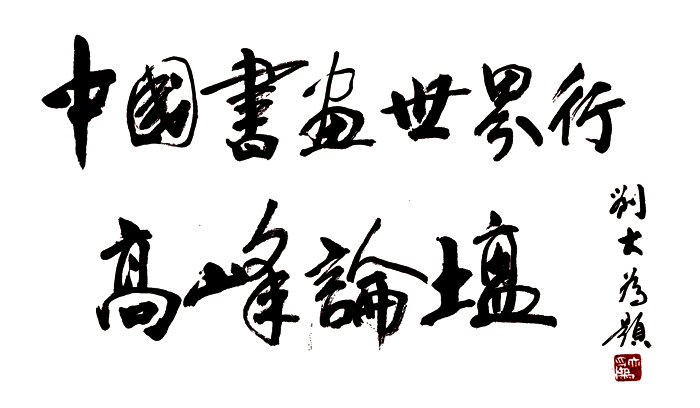 中國書畫世界行
高峰論壇
劉大為題